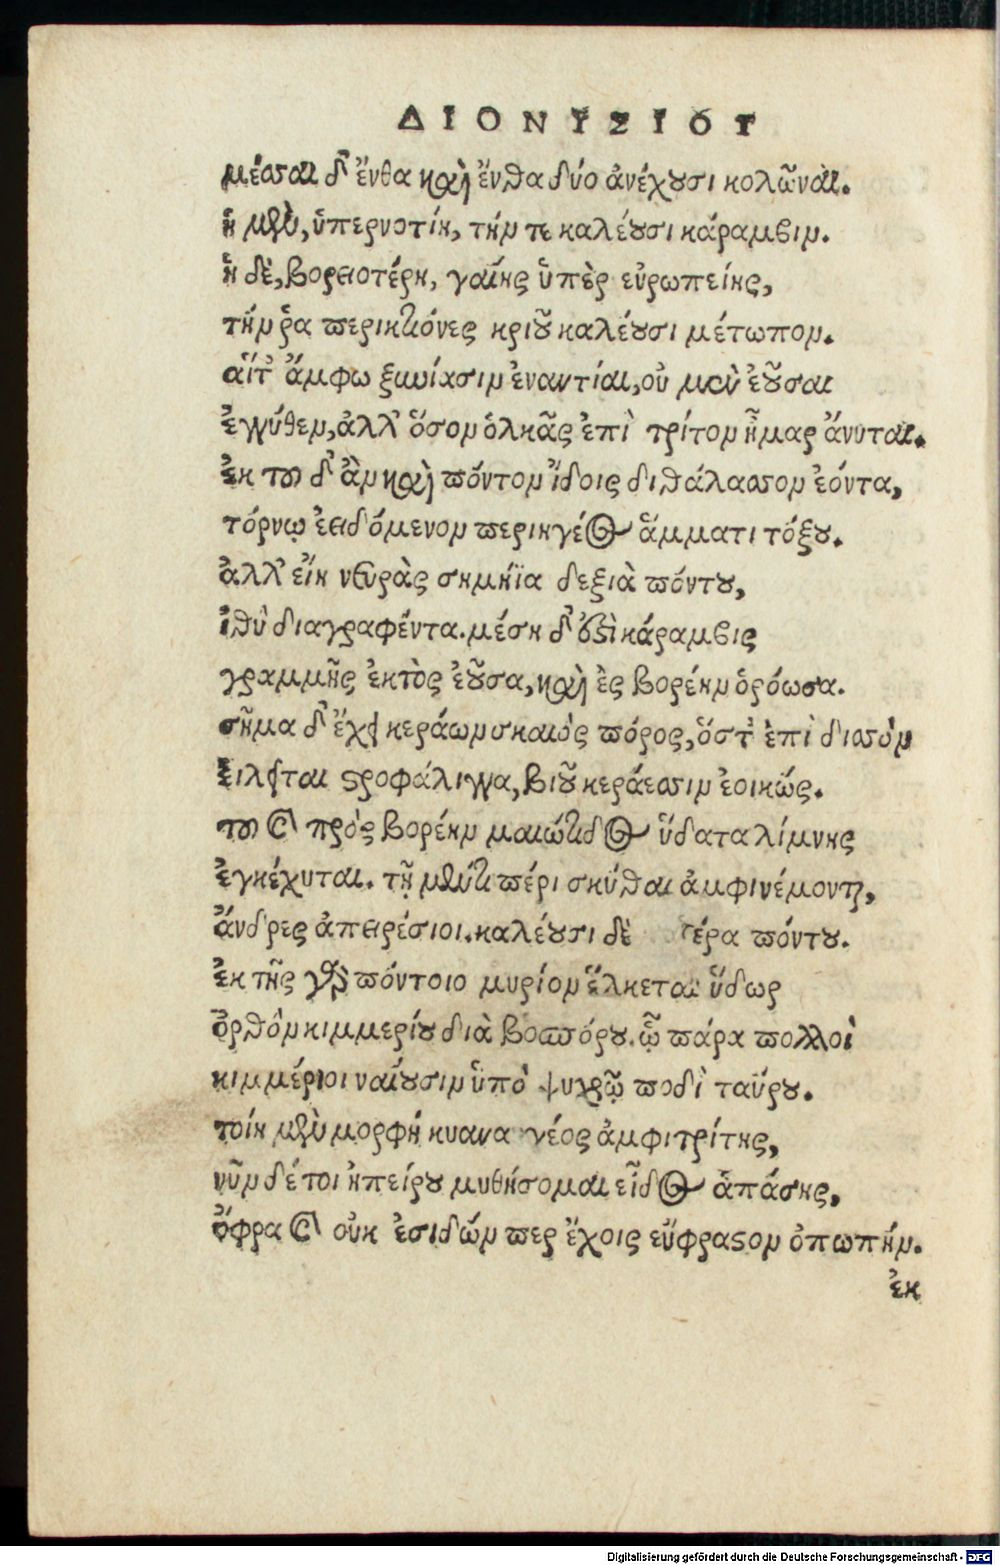 ΔΙΟΝΥΣΙΟΥ
μέσσαι δ᾽ ἔνθα καὶ ἔνθα δύο ἀνέχουσι κολῶναι.
ἡ μὲν, ὑπερνοτίη, τήν τε καλέουσι κάραμβιν.
ἡ δὲ, βορειοτέρη, γαίης ὑπὲρ εὐρωπείης,
τήν ῥα περικτιόνες κριοῦ καλέουσι μέτωπον.
αἵτ᾽ ἄμφω ξυνίασιν ἐναντίαι, οὐ μὲν ἐοῦσαι
ἐγγύθεν, ἀλλ᾽ ὅσον ὁλκὰς ἐπὶ τρίτον ἦμαρ ἀνύται.
ἐκ τοῦ δ᾽ ἂν καὶ πόντον ἴδοις διθάλασσον ἐόντα,
τόρνῳ ἐειδόμενον περιηγέος ἅμματι τόξου.
ἀλλ᾽ εἴη νευρὰς σημήϊα δεξιὰ πόντου,
ἰθὺ διαγραφέντα. μέση δ᾽ ἐστὶ κάραμβις
γραμμῆς ἐκτὸς ἐοῦσα, καὶ ἐς βορέην ὁρόωσα.
σῆμα δ᾽ ἔχει κεράων σκαιὸς πόρος, ὅστ᾽ ἐπὶ δισσὸν
εἱλεῖται στροφάλιγγα, βιοῦ κεράεσσιν ἐοικώς.
τοῦ καὶ πρὸς βορέην μαιώτιδος ὕδατα λίμνης
ἐγκέχυται. τὴν μέν τε πέρι σκύθαι ἀμφινέμονται,
ἄνδρες ἀπειρέσιοι. καλέουσι δὲ τέρα πόντου.
ἐκ τῆς γὰρ πόντοιο μυρίον ἕλκεται ὕδωρ
ὀρθὸν κιμμερίου διὰ βοσπόρου. ᾧ πάρα πολλοὶ
κιμμέριοι ναίουσιν ὑπὸ ψυχρῷ ποδὶ ταύρου.
τοίη μὲν μορφὴ κυαναυγέος ἀμφιτρίτης,
νῦν δέ τοι ἠπείρου μυθήσομαι εἶδος ἁπάσης,
ὄφρα καὶ οὐκ ἐσιδών περ ἔχοις εὔφραστον ὀπωπήν.
ἐκ
Digitalisierung gefördert durch die Deutsche Forschungsgemeinschaft - DFG